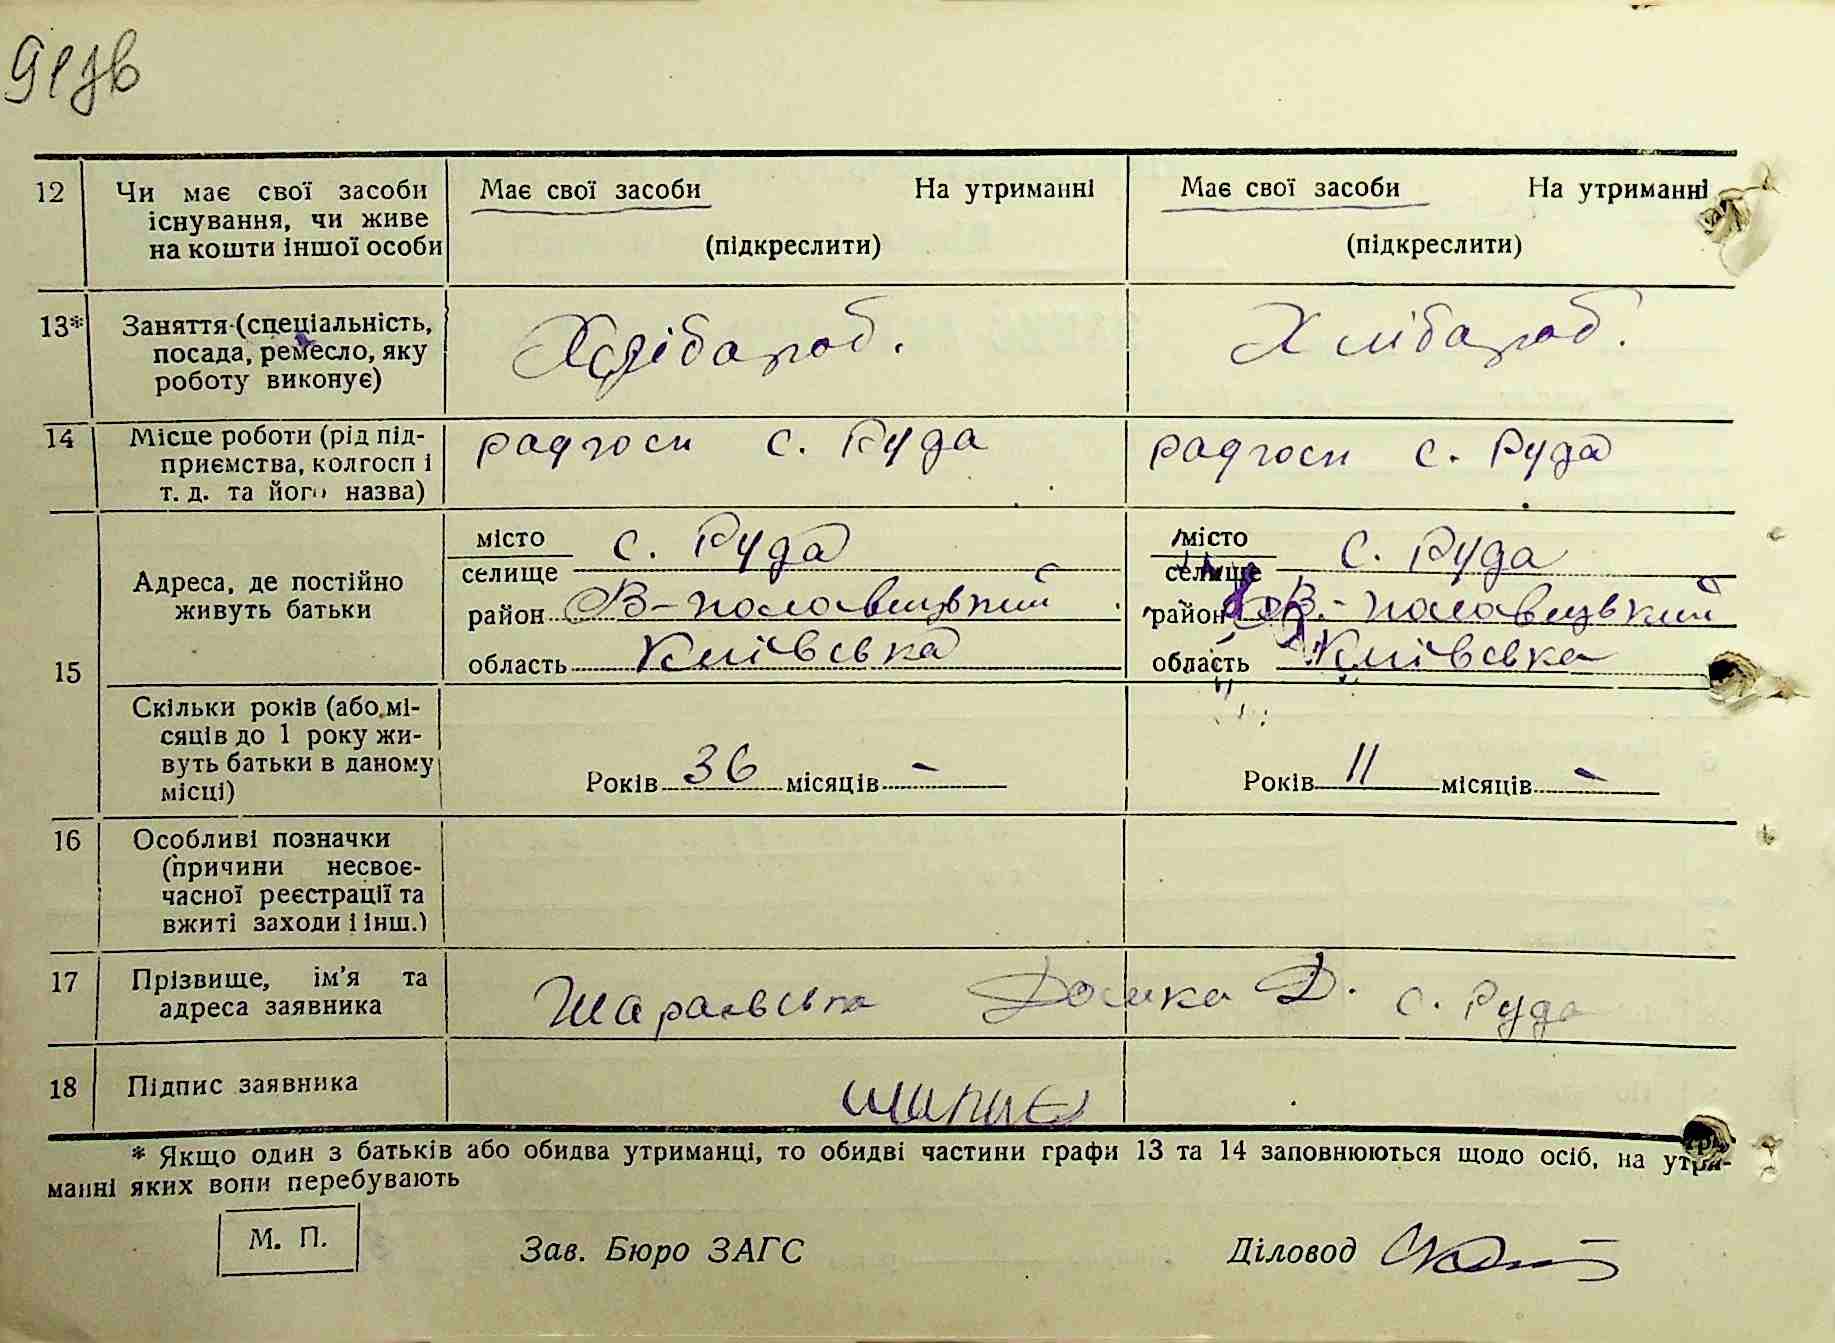 91зв
12 Чи має свої засоби існування, чи живе на кошти іншої особи
Має свої засоби На утриманні
(підкреслити)
Має свої засоби На утриманні
(підкреслити)
13* Заняття (спеціальність, посада, ремесло, яку роботу виконує)
Хлібароб.
Хлібароб.
14 Місце роботи (рід під-
приємства, колгосп і
т. д. та його назва)
радгосп с. Руда
радгосп с. Руда
15
Адреса, де постійно
живуть батьки
місто
селище
с. Руда
район В-половецький
область Київська
місто
селище
с. Руда
район В.-половецький
область Київська
Скільки років (або мі-
сяців до 1 року жи-
вуть батьки в даному
місці)
Років 36 місяців -
Років 11 місяців -
16 Особливі позначки
(причини несвоє-
часної реєстрації та
вжиті заходи і інш.)
17 Прізвище, ім'я та
адреса заявника
Домка Д. с. Руда
18 Підпис заявника
* Якщо один з батьків або обидва утриманці, то обидві частини графи 13 та 14 заповнюються щодо осіб, на утри-
манні яких вони перебувають
М. П.
Зав. Бюро ЗАГС
Діловод